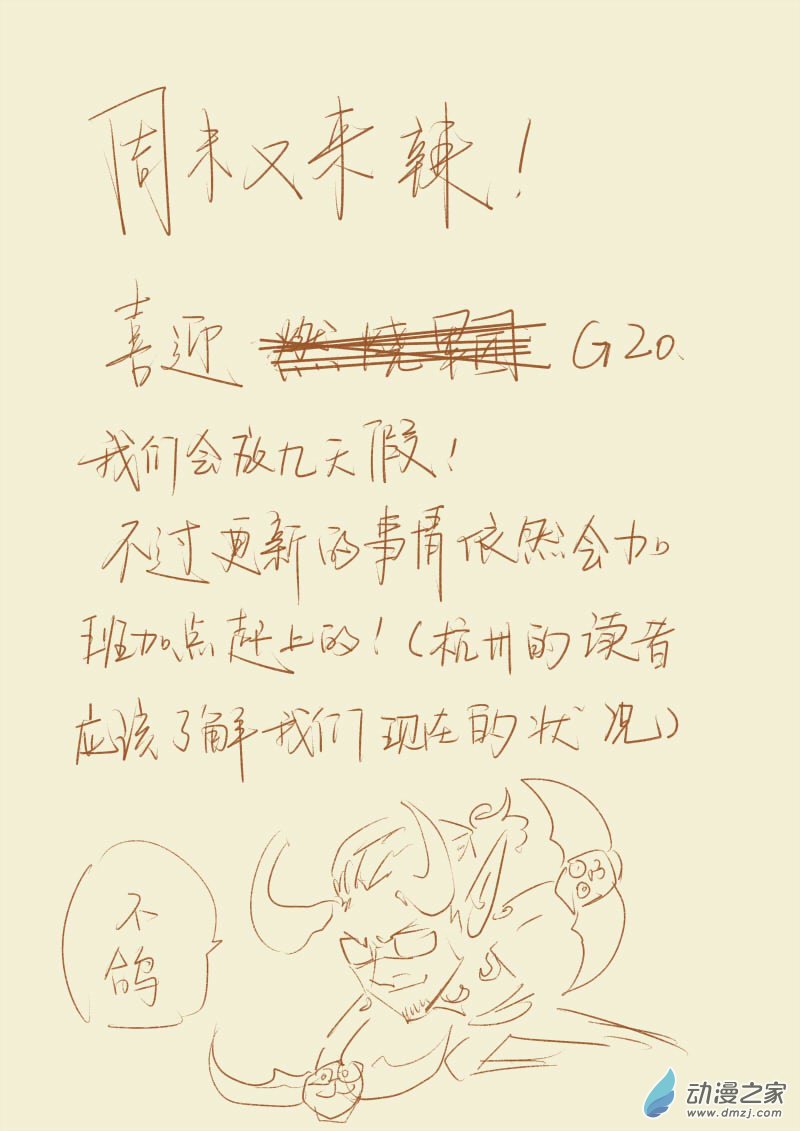 周末又来辣！
喜迎 燃烧军团 G20、
我们会放九天假！
不过更新的事情依然会加
班加点赶上的！（杭州的读者
应该了解我们现在的状况）
不
鸽
动漫之家
www.dmzj.com